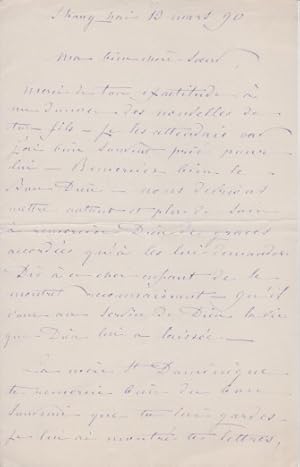 Shang haï 13 mars 90
Ma bien chère Sœur,
Merci de ton exactitude à
me donner des nouvelles de
ton fils - je les attendais car
j'ai bien souvent prié pour
lui - Remercier bien le
Bon Dieu - nous devrions
mettre autant et plus de soin
à remercier Dieu des grâces
accordées qu'à les lui demander.
Dis à ce cher enfant de se
montrer reconnaissant - qu'il
use au service de Dieu la vie
que Dieu lui a laissée -
La mère St Dominique
te remercie bien du bon
souvenir que tu lui gardes -
je lui ai montré tes lettres,